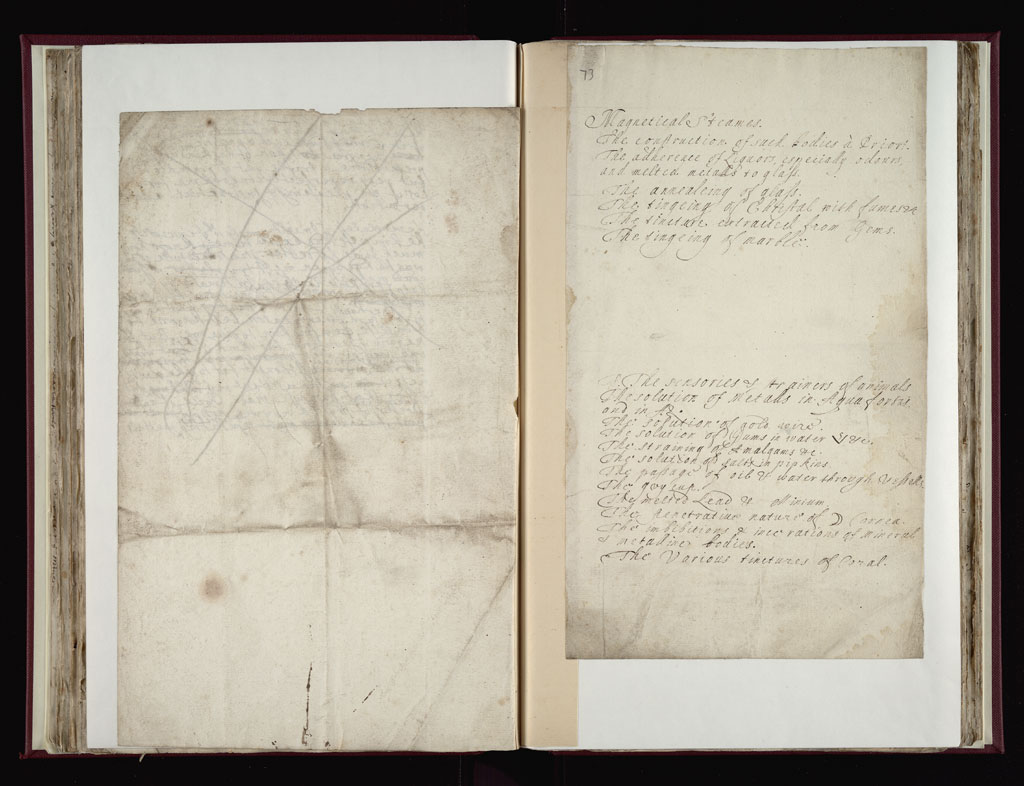 73
Magneticall Steames.
The construction of such Bodies à Priori.
The adherence of Liquors, especially odours,
and melted metals to glass.
The annealeing of glass.
The tingeing of Christal with fumes &c
The tincture extracted from Gems.
The tingeing of marble.
The sensories & strainers of animals
The solution of Metals in Aqua fortis
and in
The solution of gold wire.
The solution of Gums in water &c.
The straining of Amalgams &c.
The solution of salts in pipkins
The passage of oils & water through Vessells
The
The melted Lead & Minium
The penetrative nature of ☽ Cornea
The imbibitions & incerations of mineral
& metalline bodies.
The Various tinctures of Coral.